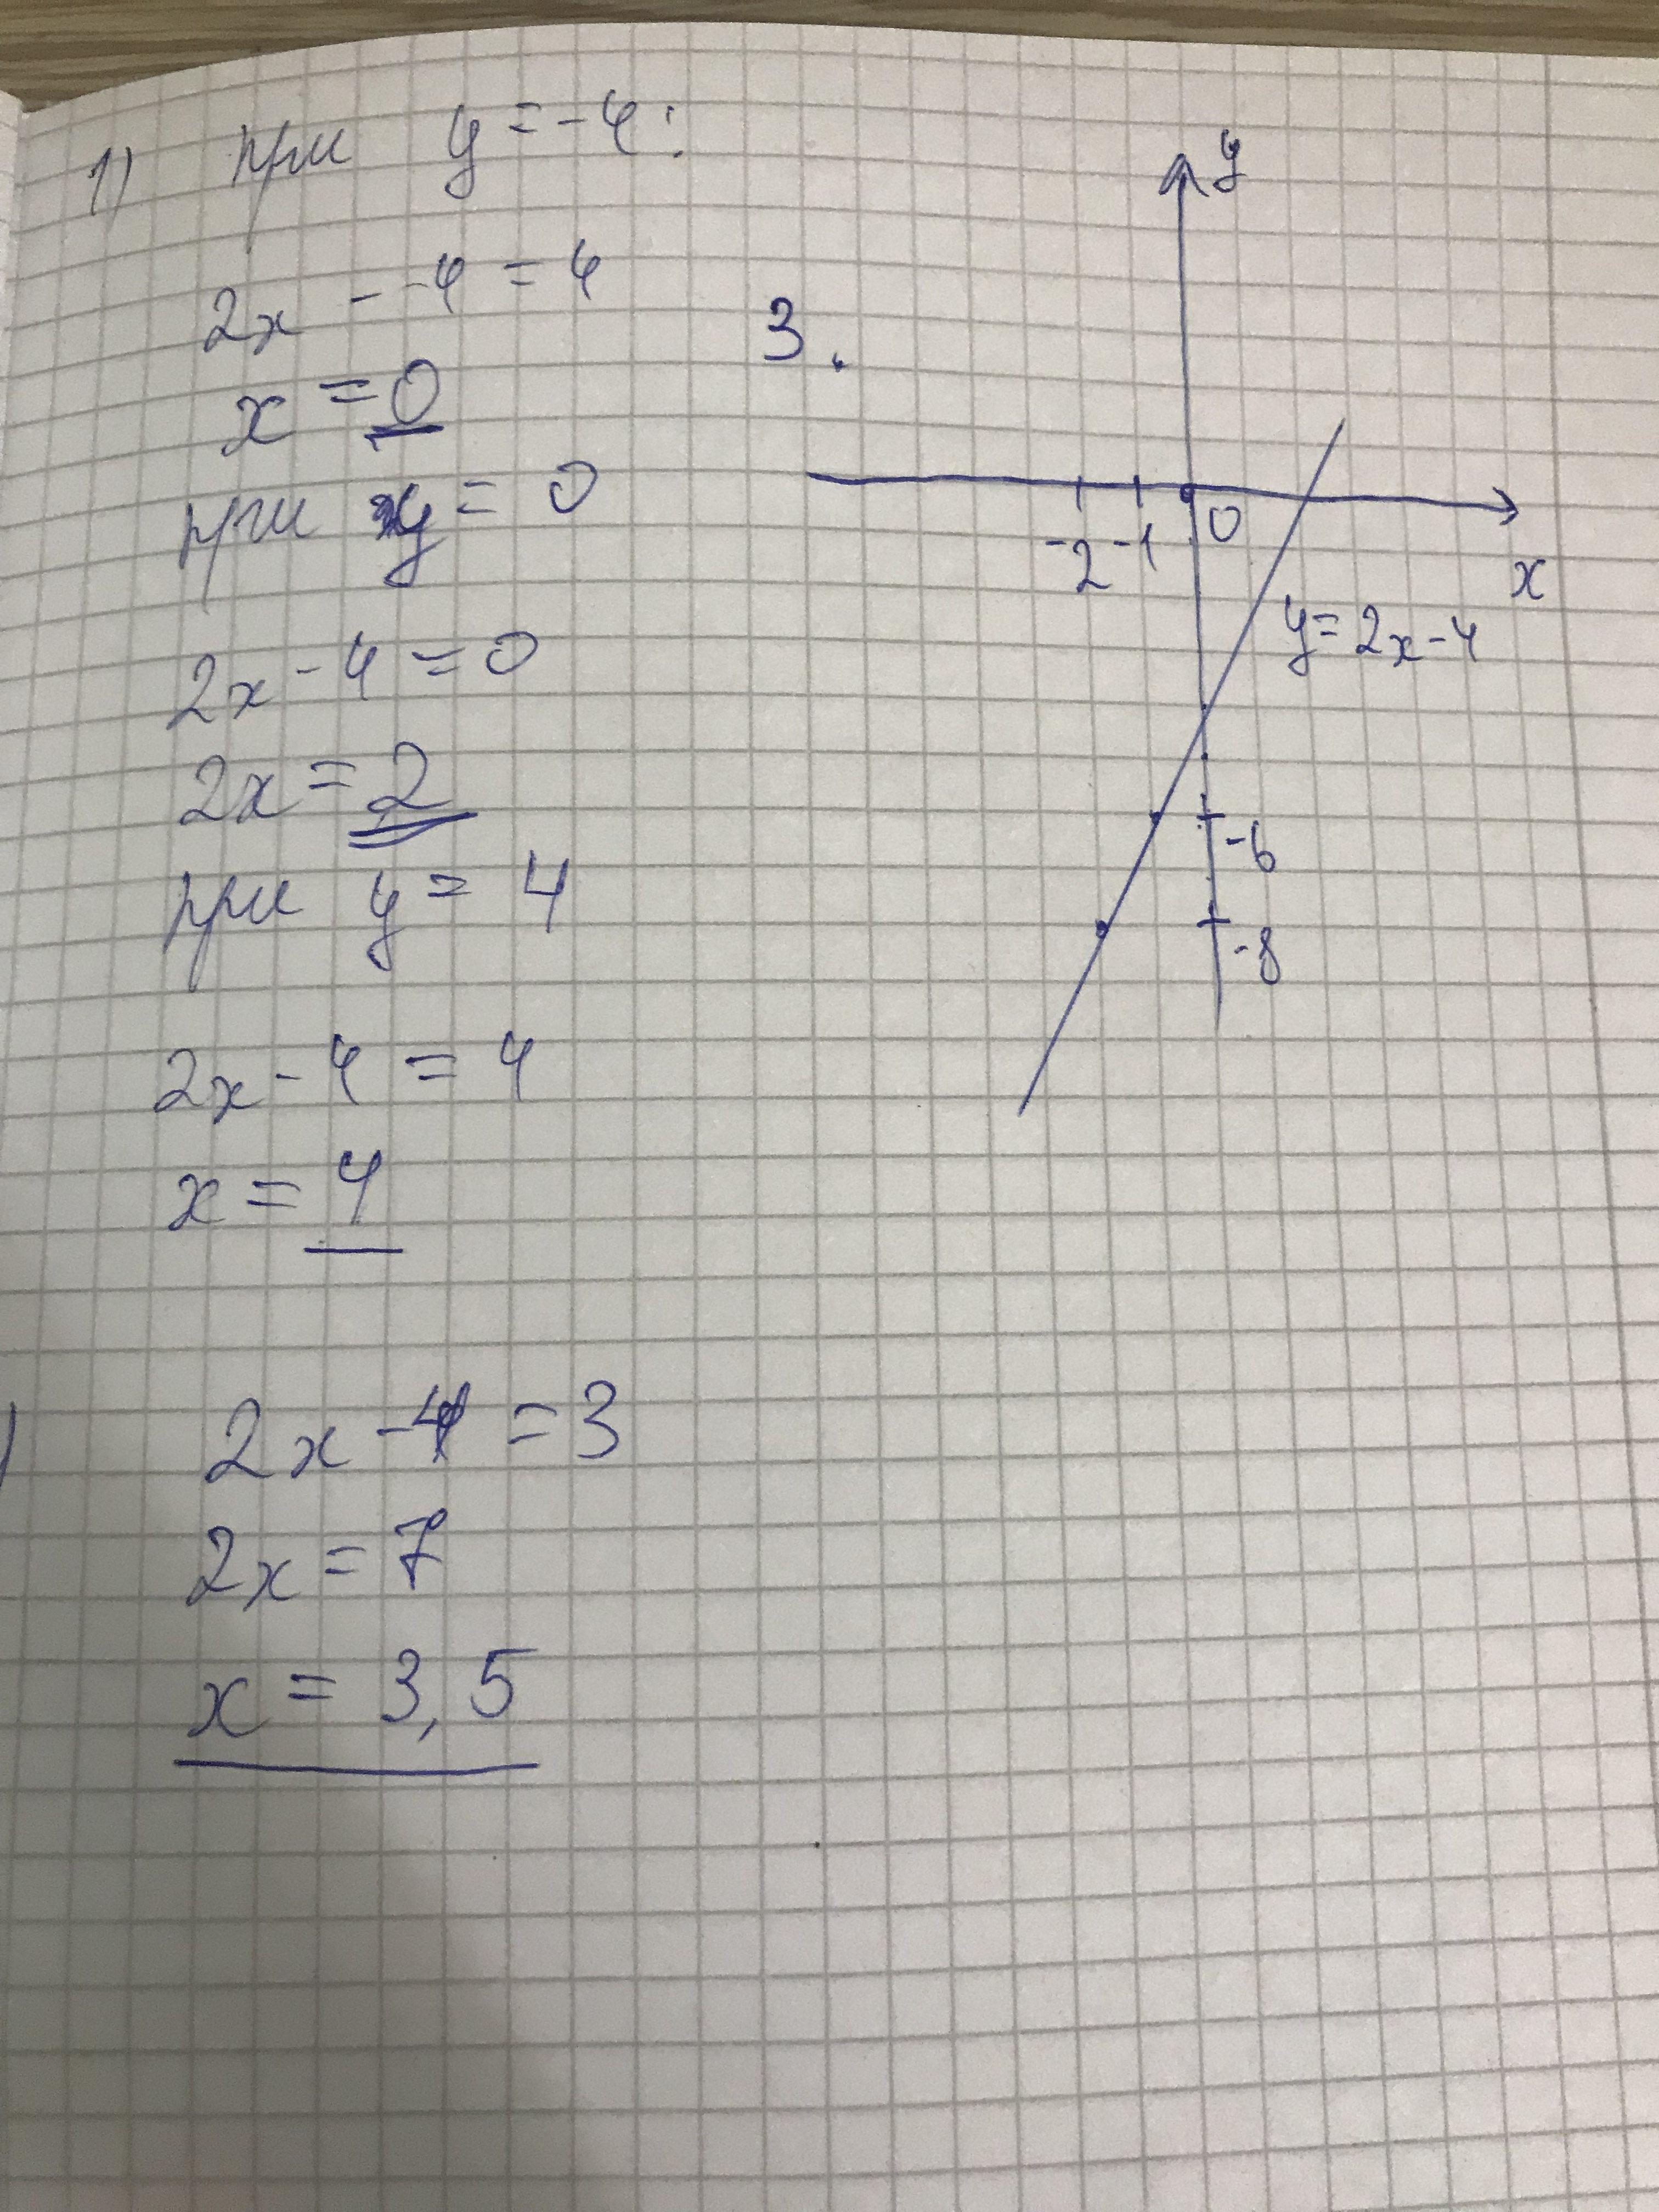 1) при y = -4:
2x - -4 = 4
x = 0
при y = 0
2x - 4 = 0
2x = 2
при y = 4
2x - 4 = 4
x = 4
) 2x - 4 = 3
2x = 7
x = 3,5
3.
y
-2 -1 0
x
y = 2x - 4
-6
-8